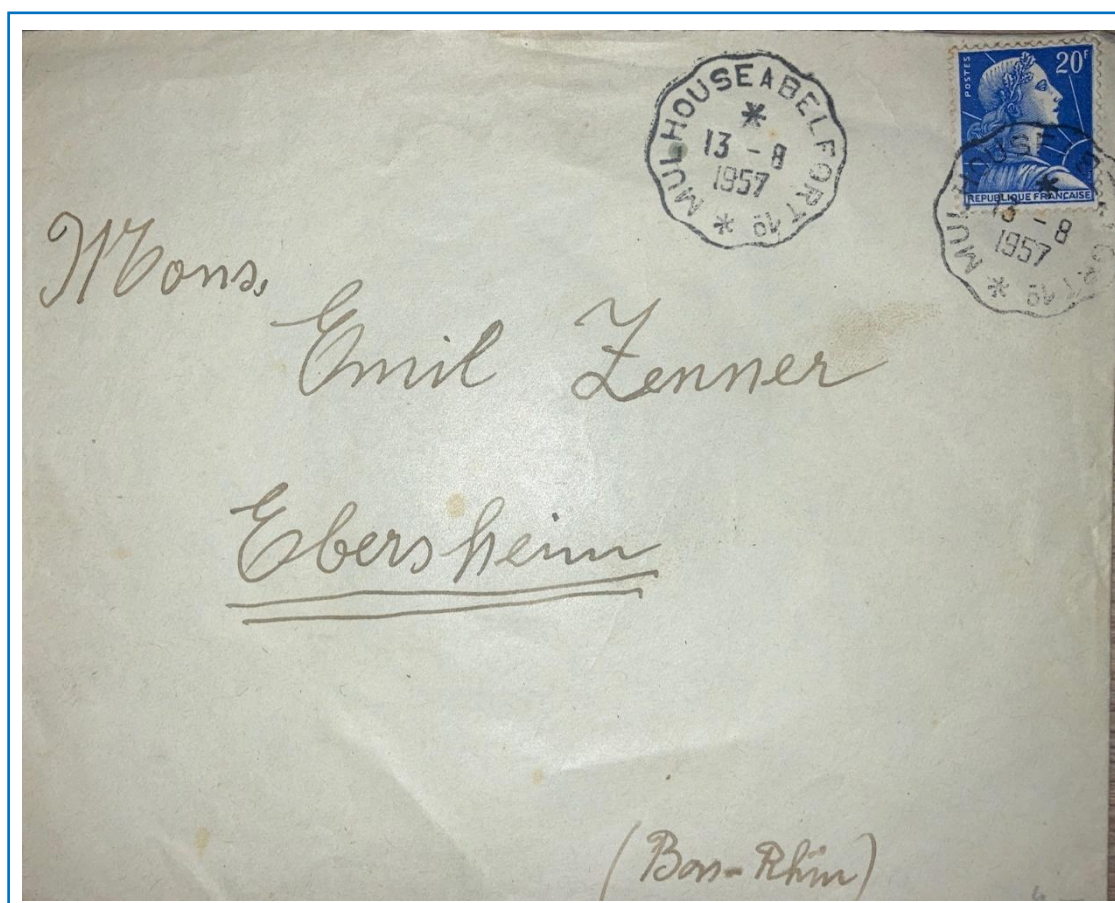 MULHOUSE A BELFORT 1°
*
13 - 8
1957
*
POSTES
20F
REPUBLIQUE FRANÇAISE
*
13 - 8
1957
*
Mons.
Emil Zenner
Ebersheim
(Bas-Rhin)